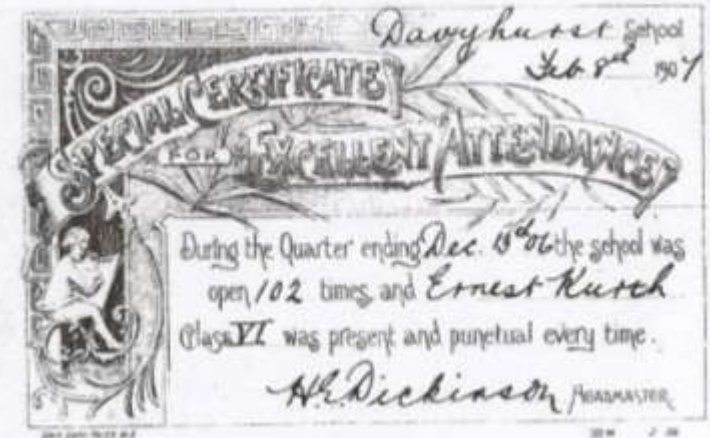 Davyhurst School
Feb 8th 1907
SPECIAL CERTIFICATE
FOR EXCELLENT ATTENDANCE
During the Quarter ending Dec. 13th 06 the school was
open 102 times, and Ernest Kurth
Class VI was present and punctual every time.
H.E. Dickinson HEADMASTER